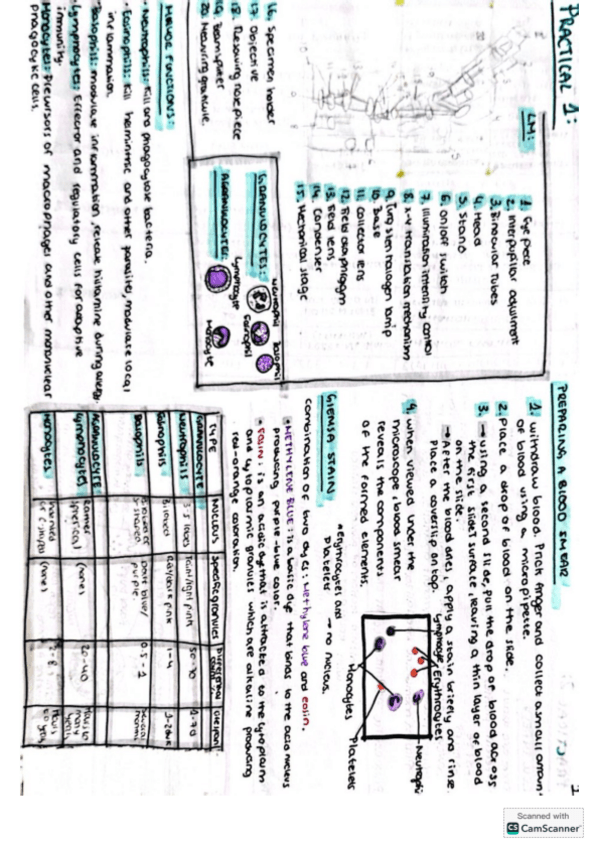 PRACTICAL 1:
LM:
1. Eye piece
2. Interpupillar adjustment
3. Binocular Tubes
4. Head
5. Stand
6. on/off switch
7. Illumination intensity control
8. x-y translation mechanism
9. Tungsten halogen lamp
10. Base
11. Collector lens
12. Field diaphragm
13. Field lens
14. Condenser
15. Mechanical stage
16. Specimen holder
17. Objective
18. Revolving nosepiece
19. Beamsplitter
20. Measuring graticule.
GRANULOCYTES:
Neutrophil
Basophil
Eosinophil
AGRANULOCYTES:
Lymphocyte
Monocyte
MAJOR FUNCTIONS:
• Neutrophils: Kill and phagocytose bacteria.
• Eosinophils: Kill helminthic and other parasites, modulate local
inflammation.
• Basophils: modulate inflammation, release histamine during allergy.
• Lymphocytes: Effector and regulatory cells for adaptive
immunity.
Monocytes: Precursors of macrophages and other mononuclear
phagocytic cells.
PREPARING A BLOOD SMEAR
1. Withdraw blood. Prick finger and collect a small amount
of blood using a micropipette.
2. Place a drop of blood on the slide.
3. → Using a second slide, pull the drop of blood across
the first slide's surface, leaving a thin layer of blood
on the slide.
→ After the blood dries, apply a stain briefly and rinse.
Place a coverslip on top.
4. When viewed under the
microscope, blood smear
reveals the components
of the formed elements.
Lymphocyte
Erythrocytes
Neutrophil
Monocytes
Platelets
* Erythrocytes and
Platelets → no nucleus.
GIEMSA STAIN
combination of two dyes: Methylene blue and eosin.
• METHYLENE BLUE: is a basic dye that binds to the acid nucleus
producing purple-blue color.
• EOSIN: is an acidic dye that is attracted to the cytoplasm
and cytoplasmic granules which are alkaline producing
red-orange coloration.
TYPE NUCLEUS Specific granules Differential count
GRANULOCYTE
Neutrophils 3-5 lobes Faint/light pink 50-70
Eosinophils Bilobed 1-4
Basophils Bilobed or S-shaped Dark blue/purple 0.5-1
AGRANULOCYTE
Lymphocytes spherical (none) 20-40
Monocytes (none) 2-8
2
Scanned with
CS CamScanner